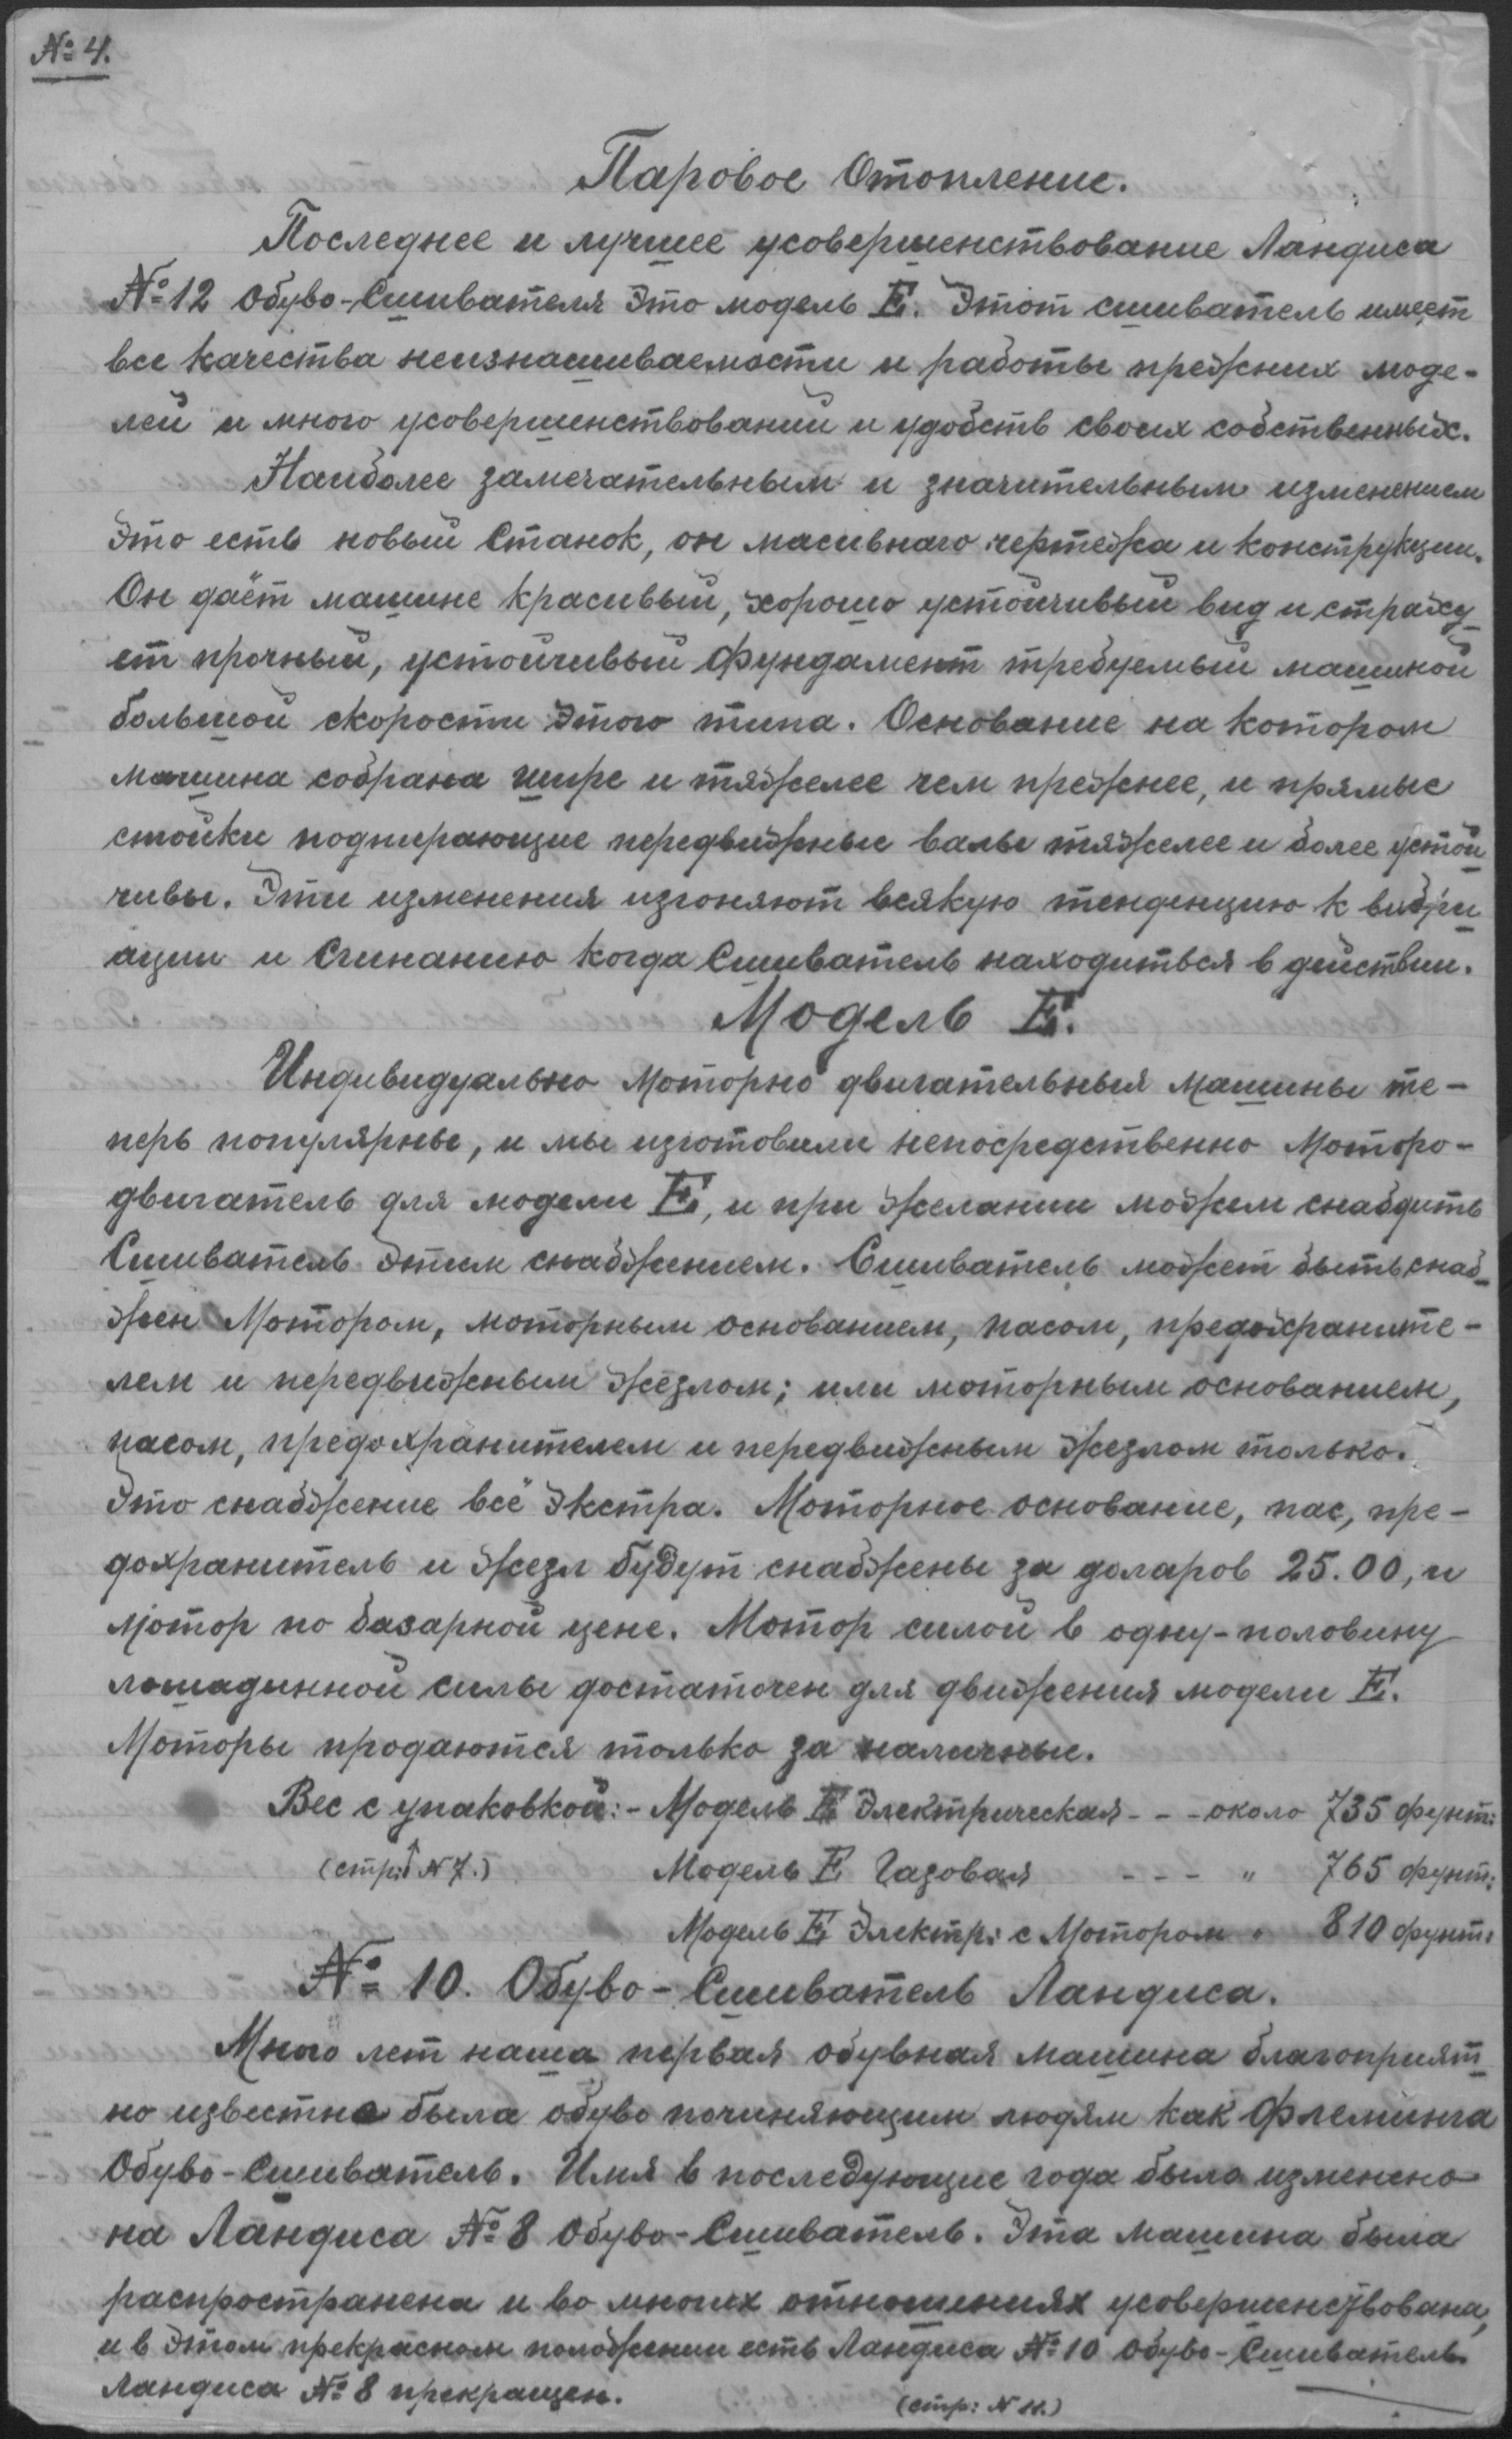 № 4.
Паровое Отопление.
Последнее и лучшее усовершенствование Ландиса
№ 12 Обуво-Сшивателя это модель E. Этот сшиватель имеет
все качества неизнашиваемости и работы прежних моде-
лей и много усовершенствований и удобств своих собственных.
Наиболее замечательным и значительным изменением
это есть новый Станок, он масивнаго чертежа и конструкции.
Он даёт машине красивый, хорошо устойчивый вид и страху_
ет прочный, устойчивый фундамент требуемый машиной
большой скорости этого типа. Основание на котором
машина собрана шире и тяжелее чем прежнее, и прямые
стойки подпирающие передвижные валы тяжелее и более устой
чивы. Эти изменения изгоняют всякую тенденцию к вибри
ации и сгинанию когда Сшиватель находиться в действии.
Модель E.
Индивидуально моторно двигательныя машины те-
перь популярны, и мы изготовили непосредственно Моторо-
двигатель для модели E, и при желании можем снабдить
Сшиватель этим снабжением. Сшиватель может быть снаб_
жен Мотором, моторным основанием, пасом, предохраните-
лем и передвижным жезлом; или моторным основанием,
пасом, предохранителем и передвижным жезлом только.
Это снабжение всё экстра. Моторное основание, пас, пре-
дохранитель и жезл будут снабжены за доларов 25.00, и
мотор по базарной цене. Мотор силой в одну-половину
лошадинной силы достаточен для движения модели E.
Моторы продаются только за наличные.
Вес с упаковкой:- Модель E Электрическая - - - около 735 фунт:
(стр: № 7.) Модель E Газовая - - - " 765 фунт:
Модель E Электр: с Мотором " 810 фунт:
№ 10. Обуво-Сшиватель Ландиса.
Много лет наша первая обувная машина благоприят
но известна была обуво починяющим людям как Флеминга
Обуво-Сшиватель. Имя в последующие года было изменено
на Ландиса № 8 Обуво-Сшиватель. Эта машина была
распространена и во многих отношениях усовершенствована,
и в этом прекрасном положении есть Ландиса № 10 Обуво-Сшиватель.
Ландиса № 8 прекращен.
(стр: N 11.)